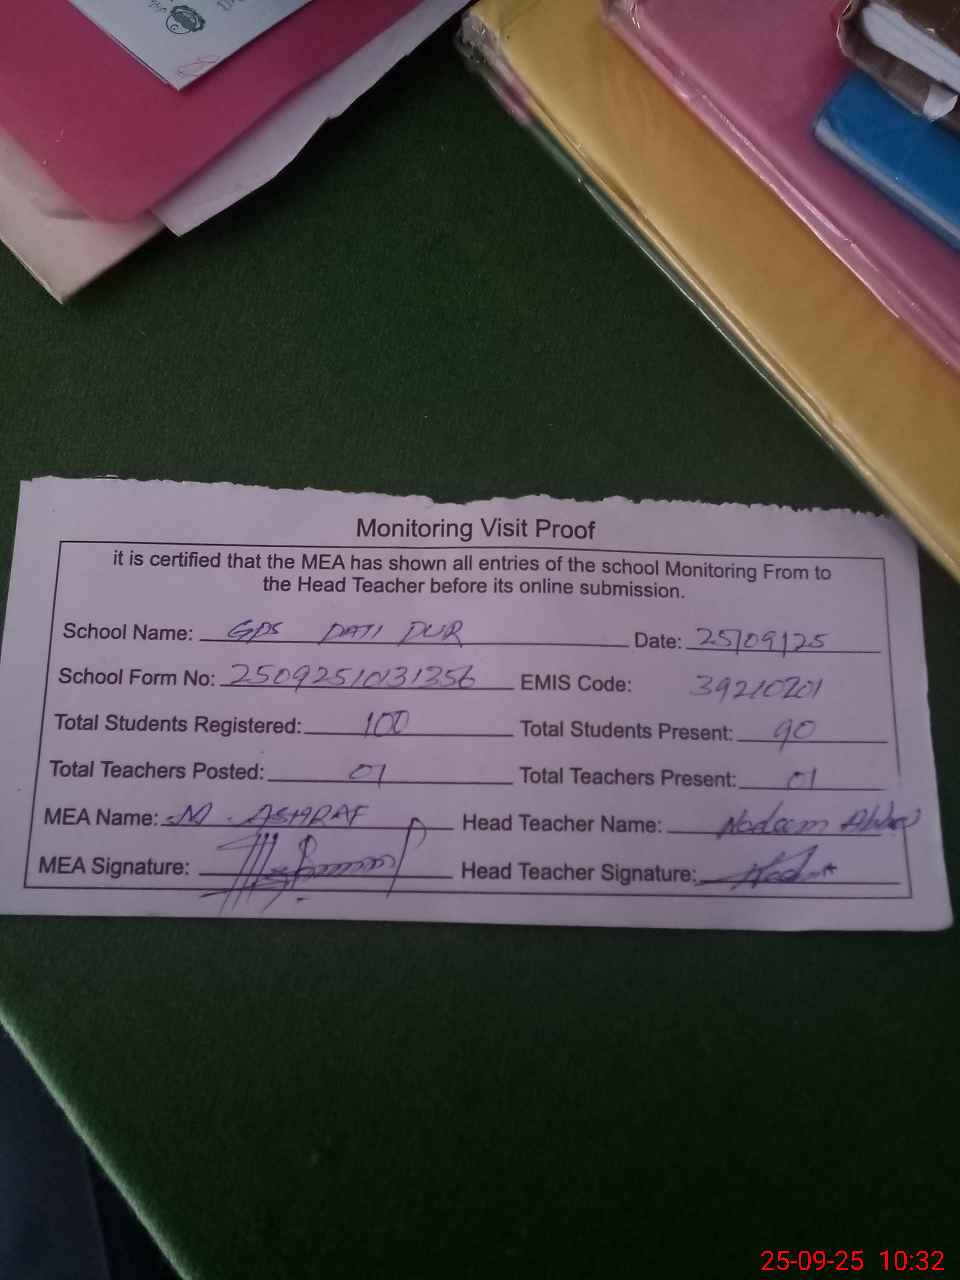 Monitoring Visit Proof
it is certified that the MEA has shown all entries of the school Monitoring From to
the Head Teacher before its online submission.
School Name: GPS DATI PUR Date: 25/09/25
School Form No: 25092510131356 EMIS Code: 39210201
Total Students Registered: 100 Total Students Present: 90
Total Teachers Posted: 01 Total Teachers Present: 01
MEA Name: M. ASHRAF Head Teacher Name: Nadeem Abbas
MEA Signature: Head Teacher Signature:
25-09-25 10:32